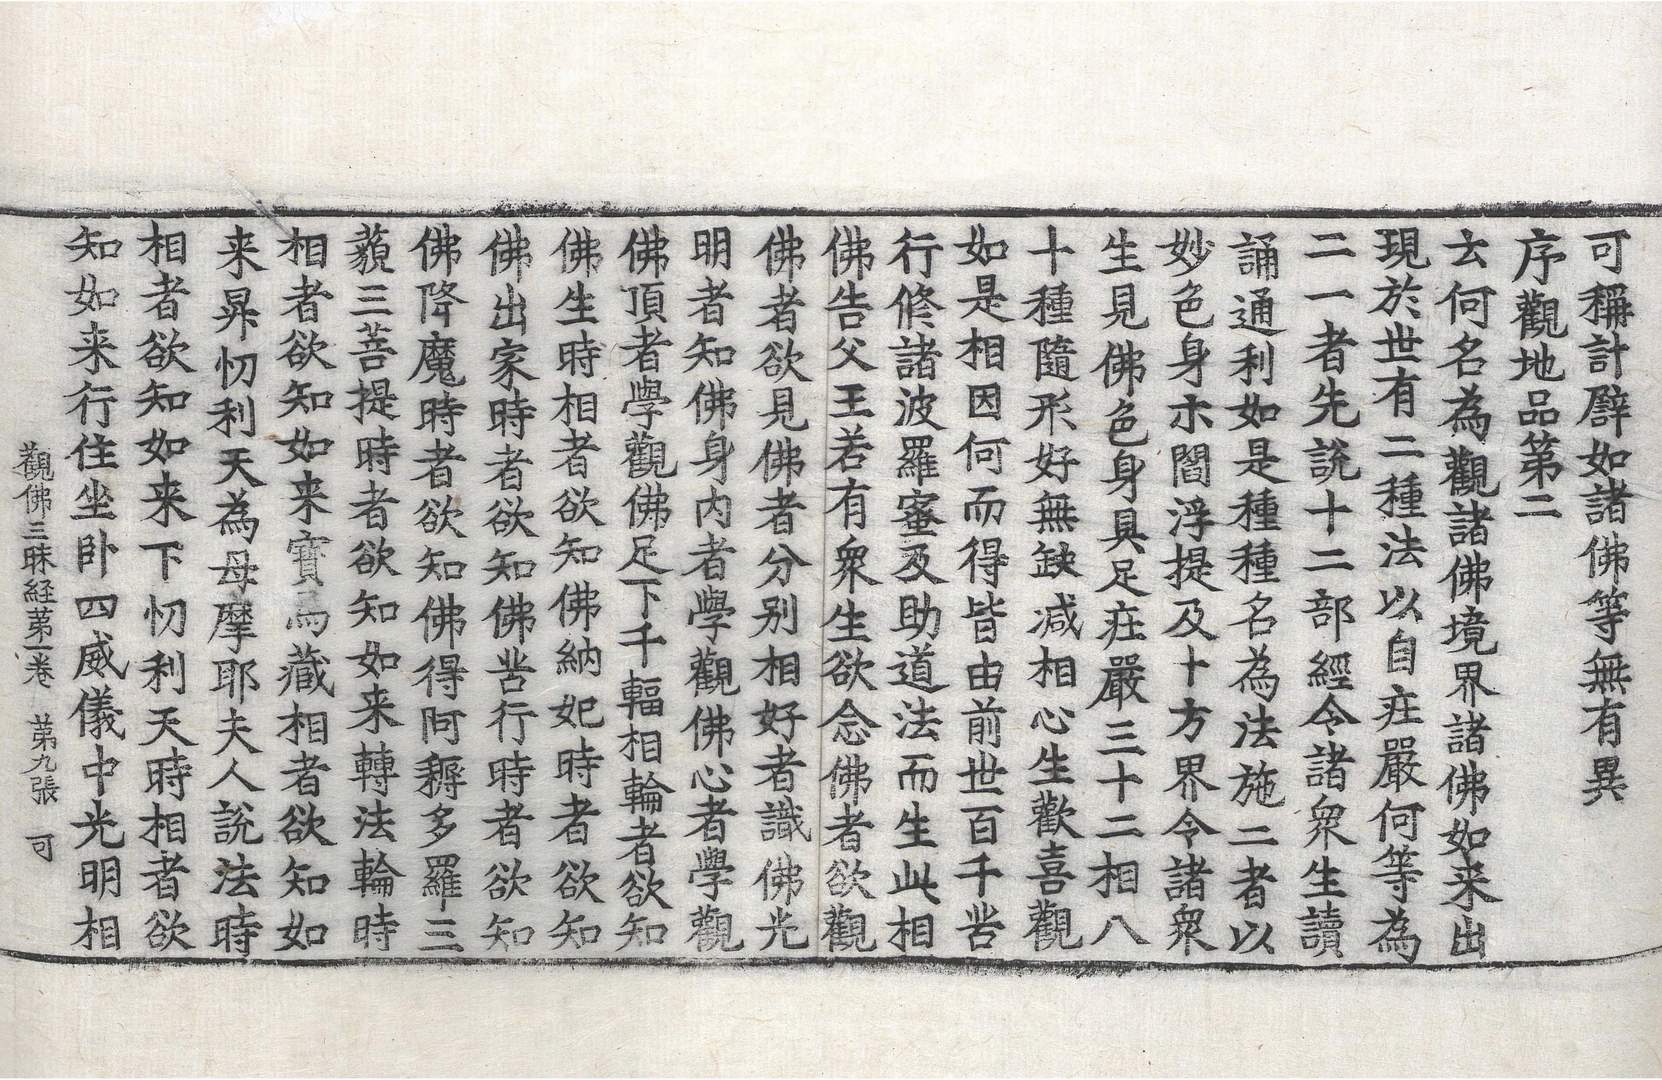 可稱計譬如諸佛等無有異
序觀地品第二
云何名為觀諸佛境界諸佛如来出
現於世有二種法以自莊嚴何等為
二一者先說十二部經令諸衆生讀
誦通利如是種種名為法施二者以
妙色身示閻浮提及十方界令諸衆
生見佛色身具足莊嚴三十二相八
十種隨形好無缺減相心生歡喜觀
如是相因何而得皆由前世百千苦
行修諸波羅蜜及助道法而生此相
佛告父王若有衆生欲念佛者欲觀
佛者欲見佛者分別相好者識佛光
明者知佛身內者學觀佛心者學觀
佛頂者學觀佛足下千輻相輪者欲知
佛生時相者欲知佛納妃時者欲知
佛出家時者欲知佛苦行時者欲知
佛降魔時者欲知佛得阿耨多羅三
藐三菩提時者欲知如来轉法輪時
相者欲知如来寶馬藏相者欲知如
来昇忉利天為母摩耶夫人說法時
相者欲知如来下忉利天時相者欲
知如来行住坐卧四威儀中光明相
觀佛三昧経苐一卷 苐九張 可